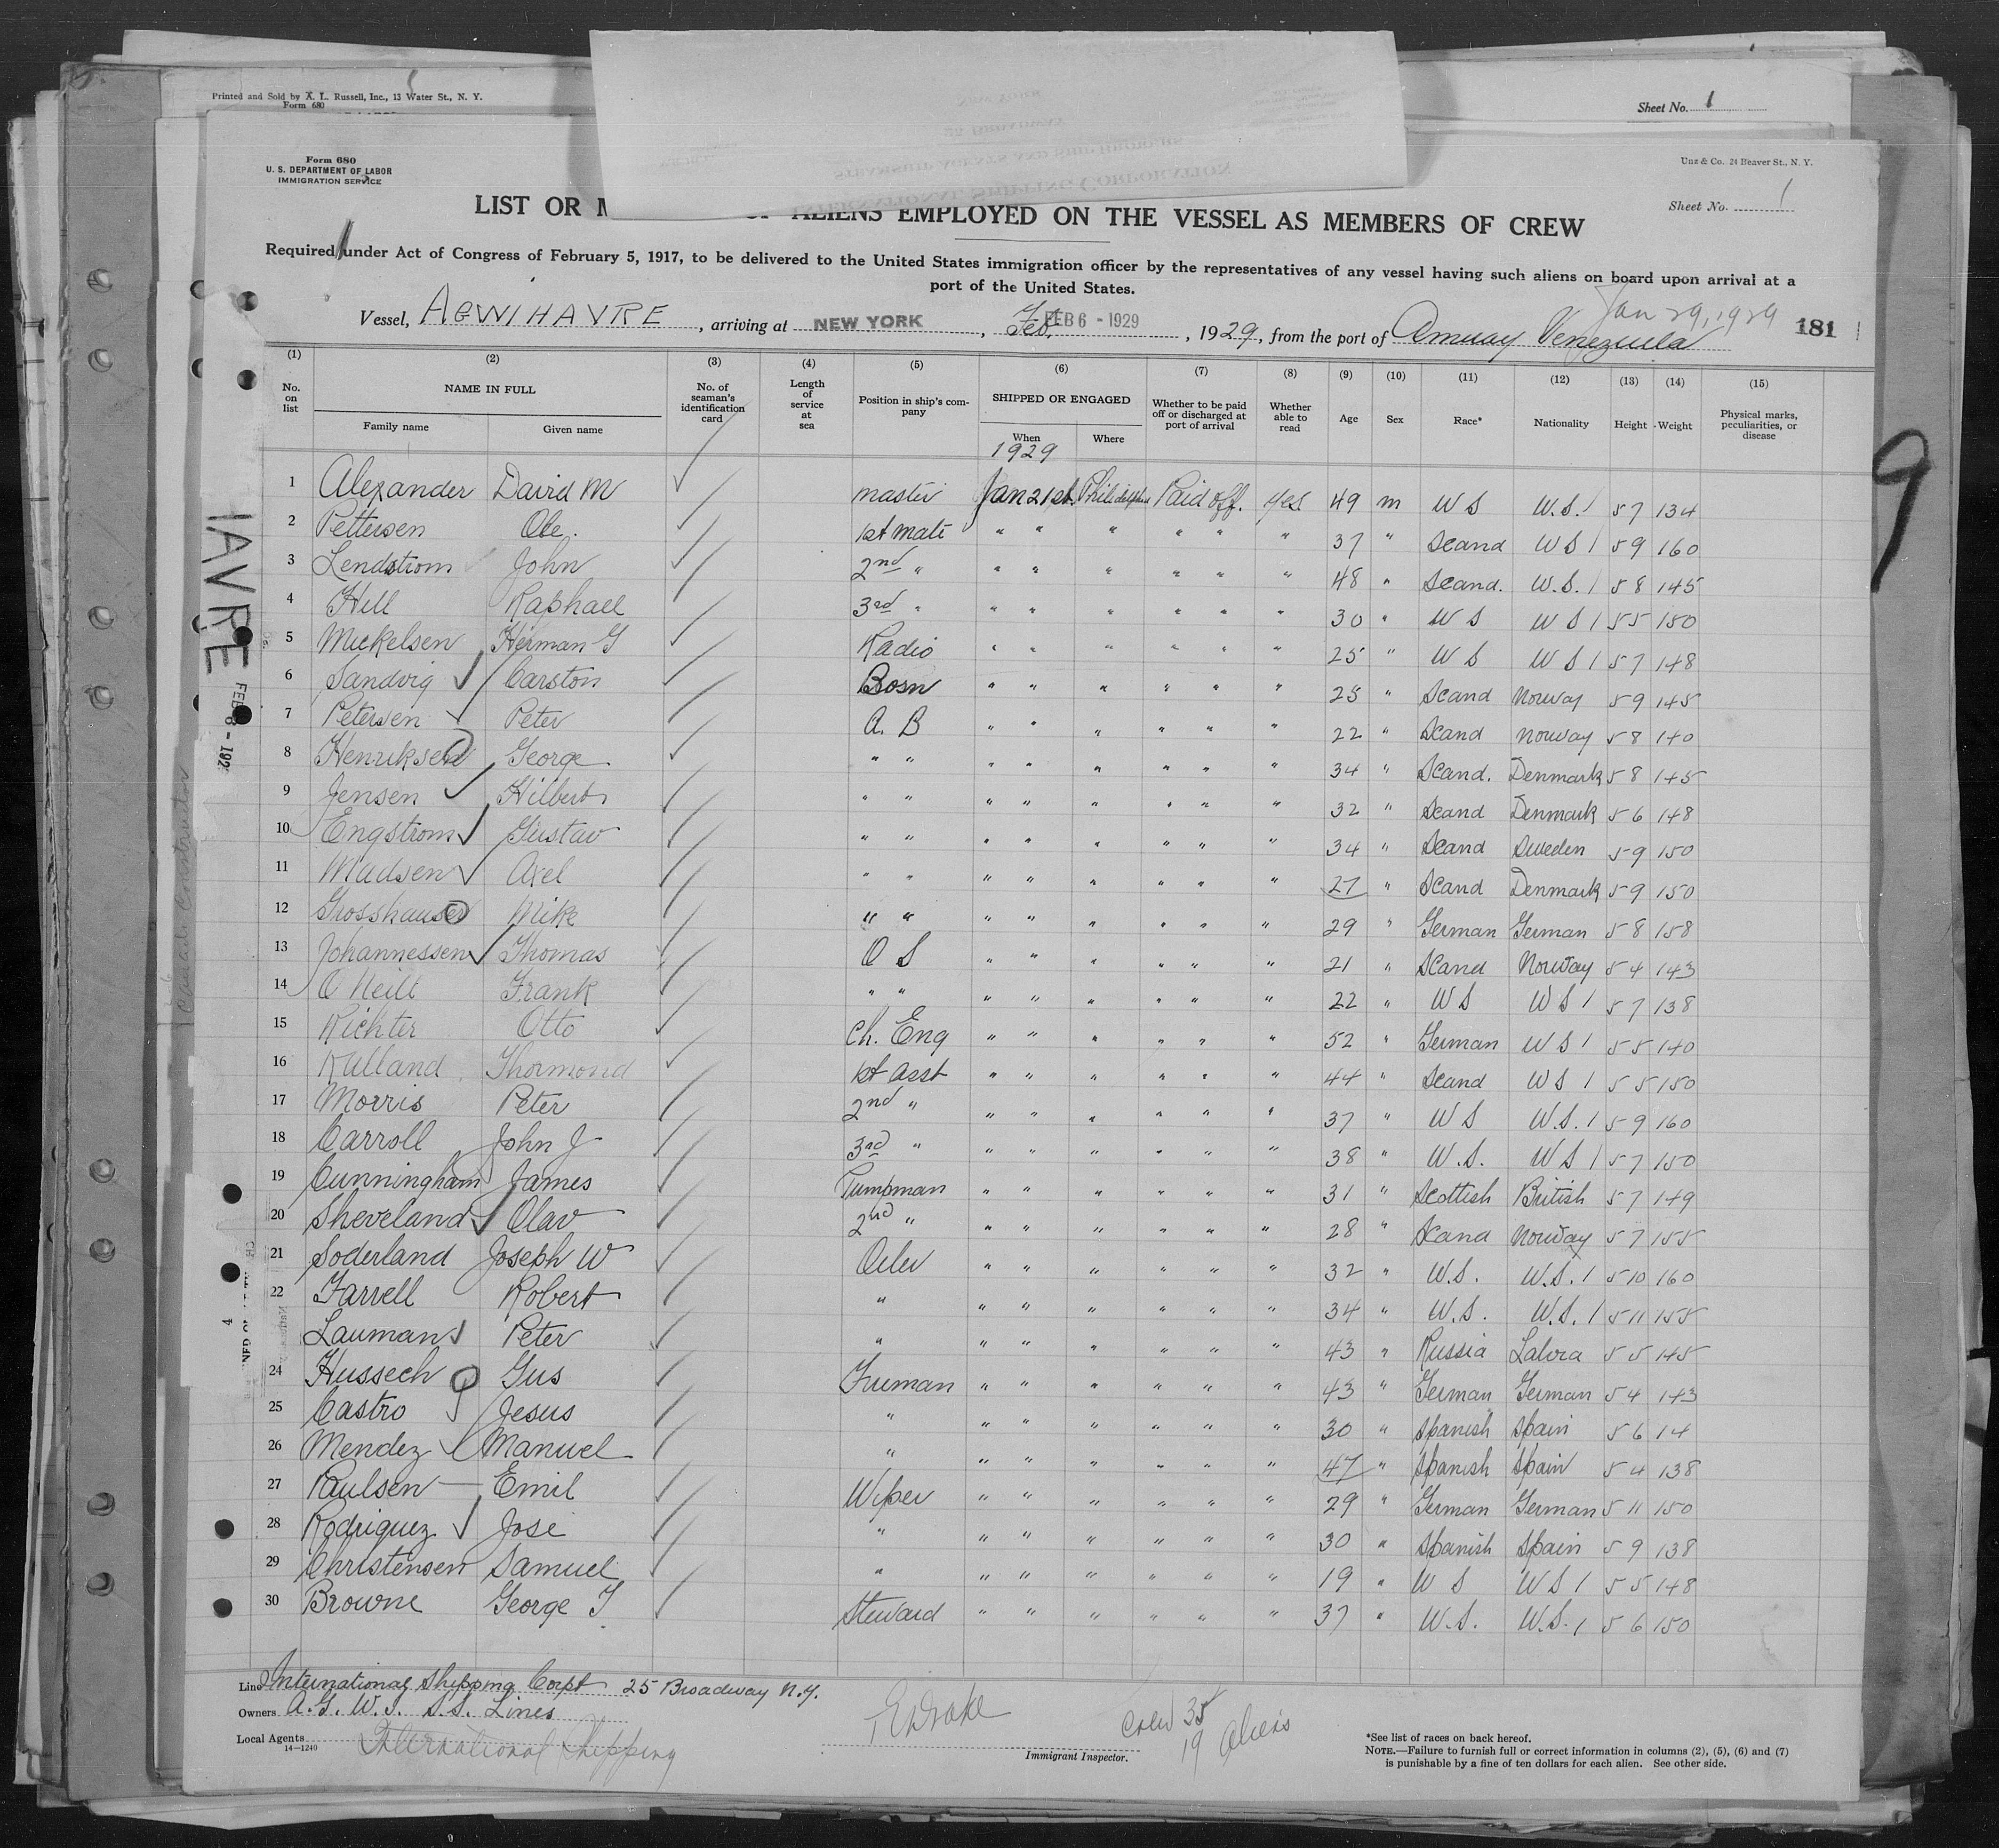 Printed and Sold by A. L. Russell, Inc., 13 Water St., N. Y.
Form 680
Sheet No. 1
Form 680
U. S. DEPARTMENT OF LABOR
IMMIGRATION SERVICE
Unz & Co. 24 Beaver St., N. Y.
Sheet No. 1
LIST OR M ALIENS EMPLOYED ON THE VESSEL AS MEMBERS OF CREW
Required under Act of Congress of February 5, 1917, to be delivered to the United States immigration officer by the representatives of any vessel having such aliens on board upon arrival at a
port of the United States.
Jan 29, 1929
Vessel, AGWIHAVRE, arriving at NEW YORK, Feb. FEB 6 - 1929, 1929, from the port of Amuay Venezuela 181
(1) (2) (3) (4) (5) (6) (7) (8) (9) (10) (11) (12) (13) (14) (15)
No. on list NAME IN FULL No. of seaman's identification card Length of service at sea Position in ship's company SHIPPED OR ENGAGED Whether to be paid off or discharged at port of arrival Whether able to read Age Sex Race* Nationality Height Weight Physical marks, peculiarities, or disease
Family name Given name When Where
1929
1 Alexander David M master Jan 21st Philidelphia Paid off. Yes 49 m U S U.S. 1 5 7 134
2 Pettersen Ole. 1st mate " " " " " " 37 " Scand U S 1 5 9 160
3 Lendstrom John 2nd " " " " " " " 48 " Scand. U.S. 1 5 8 145
4 Hill Raphael 3rd " " " " " " " 30 " U S U S 1 5 5 150
5 Mickelsen Herman G Radio " " " " " " 25 " U S U S 1 5 7 148
6 Sandvig Carston Bosn " " " " " " 25 " Scand Norway 5 9 145
7 Petersen Peter A. B " " " " " " 22 " Scand Norway 5 8 140
8 Henriksen George " " " " " " " " 34 " Scand. Denmark 5 8 145
9 Jensen Hilbert " " " " " " " " 32 " Scand Denmark 5 6 148
10 Engstrom Gustav " " " " " " " " 34 " Scand Sweden 5 9 150
11 Madsen Axel " " " " " " " " 27 " Scand Denmark 5 9 150
12 Grosshauser Mike " " " " " " " " 29 " German German 5 8 158
13 Johannessen Thomas O S " " " " " " 21 " Scand Norway 5 4 143
14 O Neill Frank " " " " " " " " 22 " U S U S 1 5 7 138
15 Richter Otto Ch. Eng " " " " " " 52 " German U S 1 5 5 140
16 Kulland Thormond 1st Asst " " " " " " 44 " Scand U S 1 5 5 150
17 Morris Peter 2nd " " " " " " " 37 " U S U.S. 1 5 9 160
18 Carroll John J 3rd " " " " " " " 38 " U.S. U S 1 5 7 150
19 Cunningham James Pumpman " " " " " " 31 " Scottish British 5 7 149
20 Sheveland Olav 2nd " " " " " " " 28 " Scand Norway 5 7 155
21 Soderland Joseph W Oiler " " " " " " 32 " U.S. U.S. 1 5 10 160
22 Farrell Robert " " " " " " " 34 " U.S. U.S. 1 5 11 155
Laumans Peter " " " " " " " 43 " Russia Latvia 5 5 145
24 Hussech Gus Fireman " " " " " " 43 " German German 5 4 143
25 Castro Jesus " " " " " " " 30 " Spanish Spain 5 6 14
26 Mendez Manuel " " " " " " " 47 " Spanish Spain 5 4 138
27 Paulsen Emil Wiper " " " " " " 29 " German German 5 11 150
28 Rodriguez Jose " " " " " " " 30 " Spanish Spain 5 9 138
29 Christensen Samuel " " " " " " " 19 " U S U S 1 5 5 148
30 Browne George T Steward " " " " " " 37 " U.S. U.S. 1 5 6 150
Line International Shipping Corpt 25 Broadway N.Y.
Owners A. G. W. I. S.S. Lines
Local Agents International Shipping
14—1240
Immigrant Inspector.
Crew 35
19 Aliens
*See list of races on back hereof.
NOTE.—Failure to furnish full or correct information in columns (2), (5), (6) and (7)
is punishable by a fine of ten dollars for each alien. See other side.
9